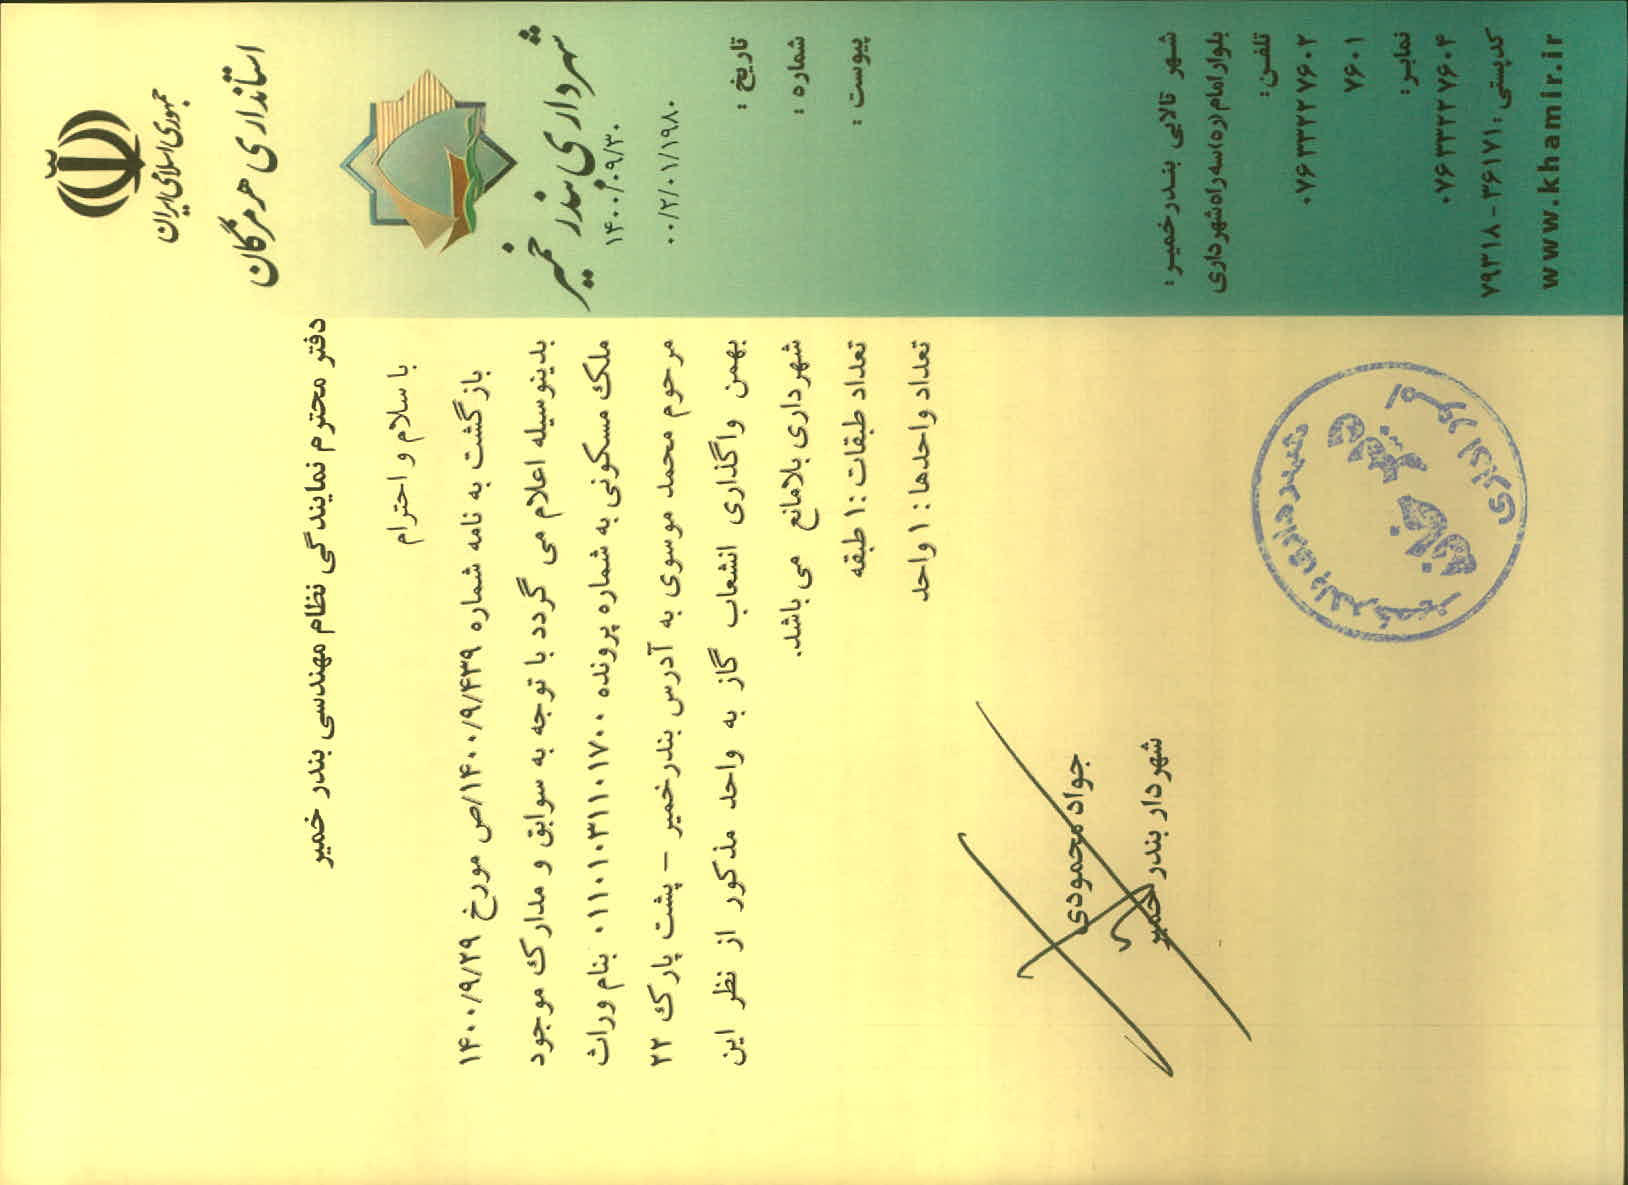 جمهوری اسلامی ایران
استانداری هرمزگان
شهرداری بندر خمیر
تاریخ :
۱۴۰۰/۰۹/۳۰
شماره :
۰۰/۲/۰۱/۱۹۸۰
پیوست :
دفتر محترم نمایندگی نظام مهندسی بندر خمیر
با سلام و احترام
بازگشت به نامه شماره ۱۴۰۰/۹/۴۳۹/ص مورخ ۱۴۰۰/۹/۲۹
بدینوسیله اعلام می گردد با توجه به سوابق و مدارک موجود
ملک مسکونی به شماره پرونده ۰۱۱۰۱۰۳۱۱۰۱۷۰۰ بنام وراث
مرحوم محمد موسوی به آدرس بندرخمیر – پشت پارک ۲۲
بهمن واگذاری انشعاب گاز به واحد مذکور از نظر این
شهرداری بلامانع می باشد.
تعداد طبقات : ۱ طبقه
تعداد واحدها : ۱ واحد
جواد محمودی
شهردار بندر خمیر
شهرداری بندر خمیر
امور اداری
شهر تالابی بندرخمیر :
بلوار امام (ره) سه راه شهرداری
تلفن:
۰۷۶۳۳۲۲۷۶۰۲
۷۶۰۱
نمابر:
۰۷۶۳۳۲۲۷۶۰۴
کدپستی : ۳۶۱۷۱ - ۷۹۳۱۸
www.khamir.ir